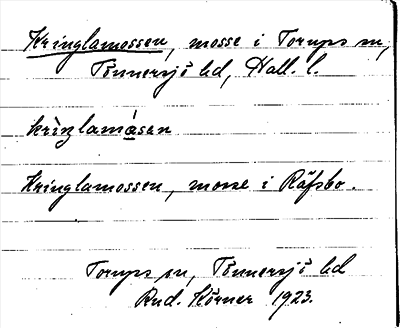 Kringlamossen, mosse i Torups sn,
Tönnersjö hd, Hall. l.
kriŋlamåsen
Kringlamossen, mosse i Räfsbo.
Torups sn, Tönnersjö hd
Rud. Körner 1923.